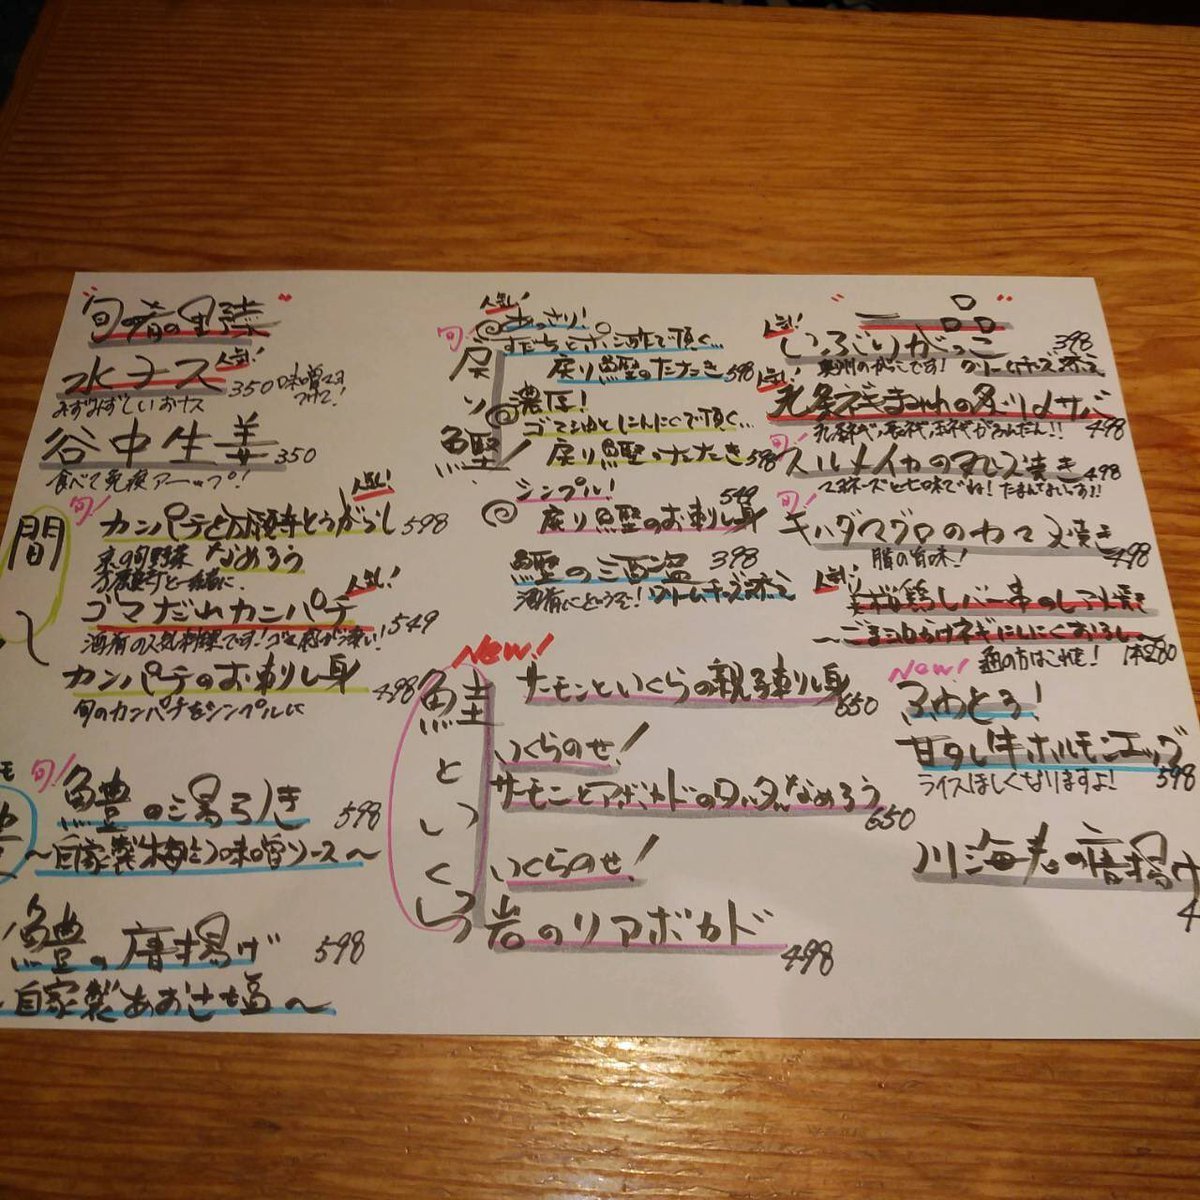 "旬の肴の野菜"
水ナス 人気! 350 味噌マヨつけて!
みずみずしいおナス
谷中生姜 350
食べて免疫アーップ!
間
旬! カンパチと万願寺とうがらし 598 人気!
なめろう
京の旬野菜
万願寺と一緒に
ゴマだれカンパチ 人気! 549
酒肴の人気料理です!ゴマ感が凄い!
カンパチのお刺し身 498
旬のカンパチをシンプルに
旬! 鱧の湯引き 598
〜自家製梅肉味噌ソース〜
鱧の唐揚げ 598
自家製あおさ塩〜
旬! 戻り鰹!
人気! あっさり!
すだちとポン酢で頂く…
戻り鰹のたたき 598
濃厚!
ゴマ油とにんにくで頂く…
戻り鰹のたたき 598
シンプル! 549
戻り鰹のお刺し身
鰹の酒盗 398
酒肴にどうぞ! クリームチーズ添え
New!
鮭といくら
サーモンといくらの親子刺し身 650
いくらのせ!
サーモンとアボカドのタルタルなめろう 650
いくらのせ!
岩のりアボカド 498
"一品"
人気! いぶりがっこ 398
奥州のがっこです! クリームチーズ添え
人気! 九条ネギまみれの炙り〆サバ 498
旬! スルメイカの丸焼き 498
マヨネーズと七味でね! たまんないっす!!
旬! キハダマグロのカマ焼き 498
脂の旨味!
人気! 美桜鶏レバー串のレア焼
〜ごま油がけネギにんにくおろし〜
通の方はこれを! 1本280
New!
ふわとろ!
甘辛し牛ホルモンエッグ 598
ライスほしくなりますよ!
川海老の唐揚げ
4